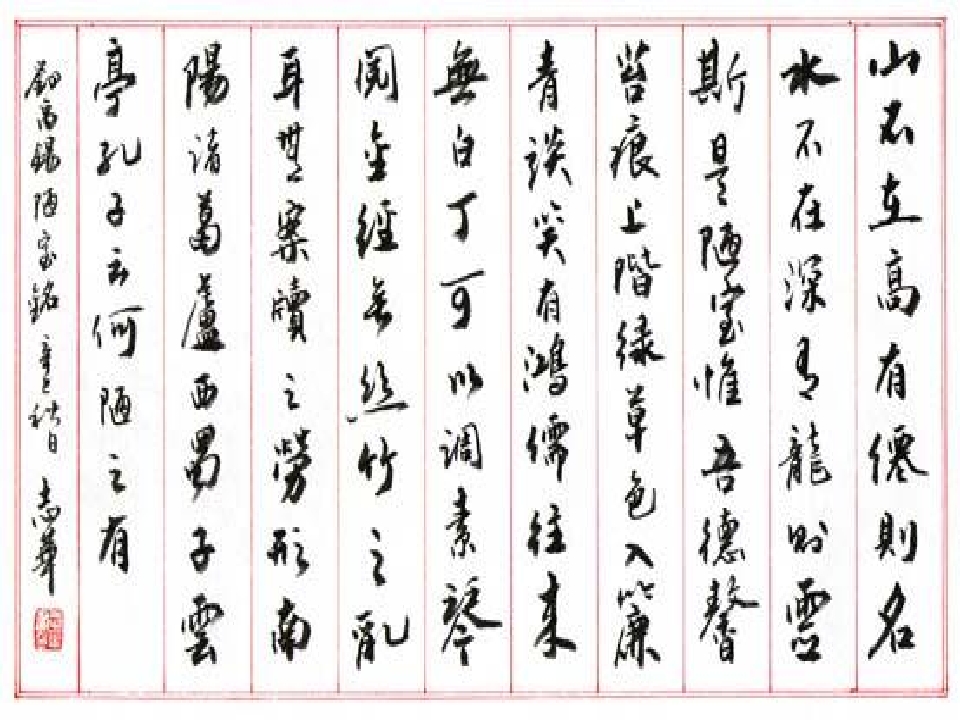 山不在高有僊則名
水不在深有龍則靈
斯是陋室惟吾德馨
苔痕上階緑草色入簾
青談笑有鴻儒往來
無白丁可以調素琴
閱金經無絲竹之亂
耳無案牘之勞形南
陽諸葛蘆西蜀子雲
亭孔子云何陋之有
劉禹錫陋室銘辛巳秋日志華